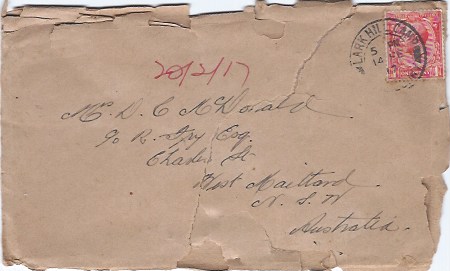 LARK HILL CAMP
20/2/17
Mr D. C McDonald
c/o R. Fry Esq.
Charles St
West Maitland
N. S. W
Australia.